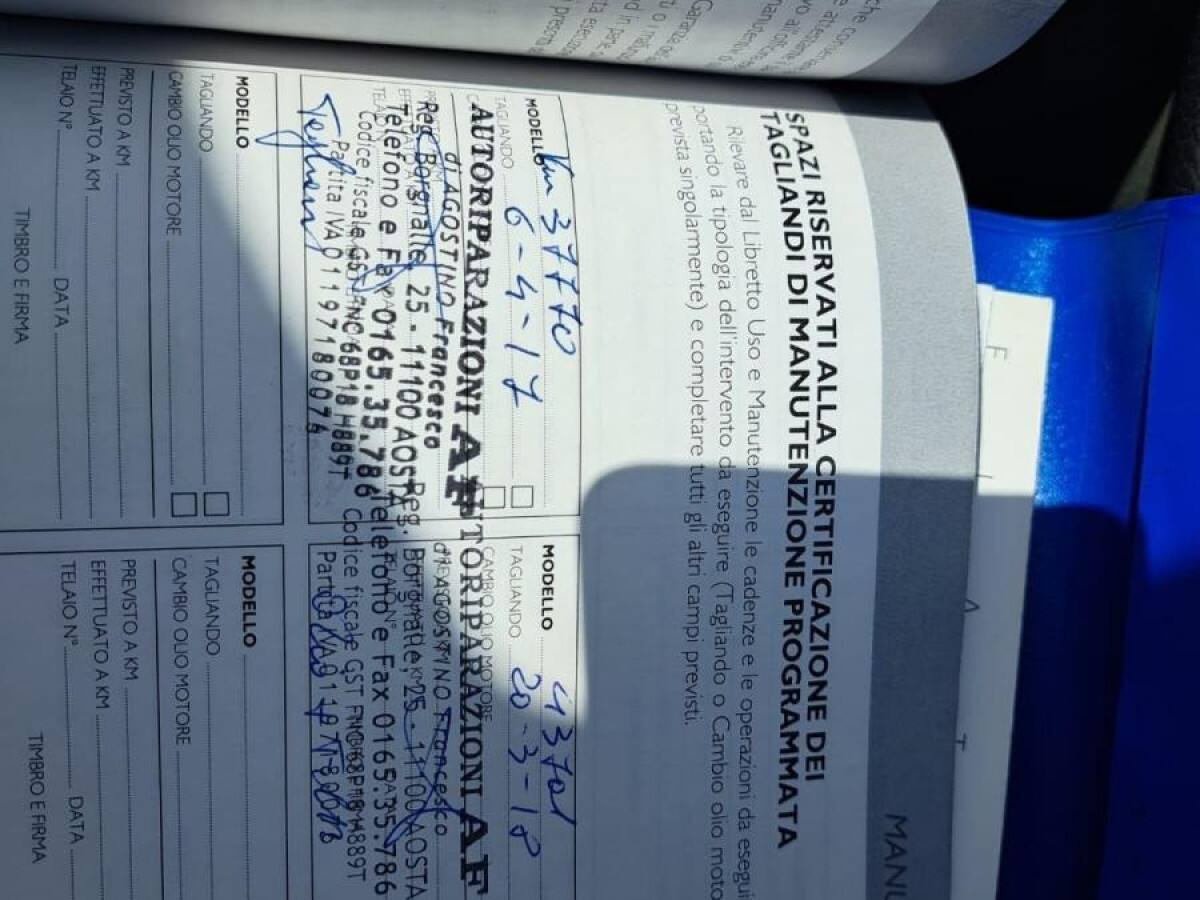 MANU
SPAZI RISERVATI ALLA CERTIFICAZIONE DEI
TAGLIANDI DI MANUTENZIONE PROGRAMMATA
Rilevare dal Libretto Uso e Manutenzione le cadenze e le operazioni da esegui
portando la tipologia dell'intervento da eseguire (Tagliando o Cambio olio moto
prevista singolarmente) e completare tutti gli altri campi previsti.
MODELLO Km 37770
TAGLIANDO 6-4-17
AUTORIPARAZIONI AF
di AGOSTINO Francesco
Reg. Borgnalle, 25 - 11100 AOSTA
Telefono e Fax 0165.35.786
Codice fiscale GST FNC 68P18 H889T
Partita IVA 01197180076
MODELLO 43701
TAGLIANDO 20-3-18
CAMBIO OLIO MOTORE
AUTORIPARAZIONI AF
di AGOSTINO Francesco
Reg. Borgnalle, 25 - 11100 AOSTA
Telefono e Fax 0165.35.786
Codice fiscale GST FNC 68P18 H889T
Partita IVA 01197180076
MODELLO
TAGLIANDO
CAMBIO OLIO MOTORE
PREVISTO A KM
EFFETTUATO A KM
TELAIO N° DATA
TIMBRO E FIRMA
MODELLO
TAGLIANDO
CAMBIO OLIO MOTORE
PREVISTO A KM
EFFETTUATO A KM
TELAIO N° DATA
TIMBRO E FIRMA